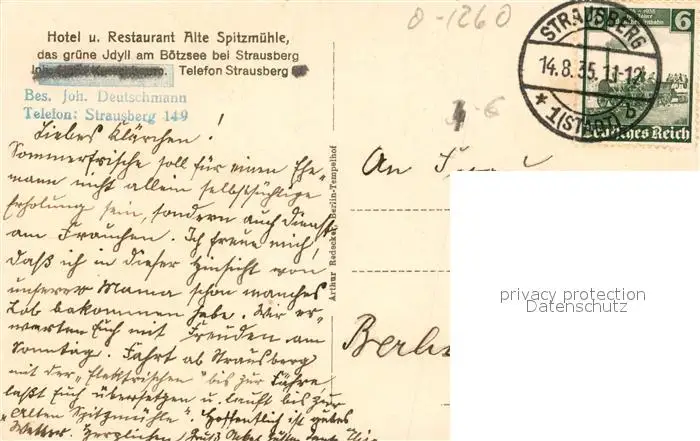 0-1260
Hotel u. Restaurant Alte Spitzmühle,
das grüne Jdyll am Bötzsee bei Strausberg
Telefon Strausberg
Bes. Joh. Deutschmann
Telefon: Strausberg 149
STRAUSBERG
14.8.35.11-12
* 1(STADT) b
6
Deutsches Reich
Liebes Klärchen!
Sommerfrische soll für einen Ehe-
mann nicht allein selbstsüchtige
Erholung sein, sondern auch Dienst
am Frauchen. Ich freue mich,
daß ich in dieser Hinsicht von
unserer Mama schon manches
Lob bekommen habe. Wir er-
warten Euch mit Freuden am
Sonntag. Fahrt ab Strausberg
mit der „Elektrischen" bis zur Fähre
laßt Euch übersetzen u. lauft bis zur
„Alten Spitzmühle". Hoffentlich ist gutes
Wetter. Herzlichen Gruß
Arthur Redecker, Berlin-Tempelhof
An Frau
Berlin
privacy protection
Datenschutz